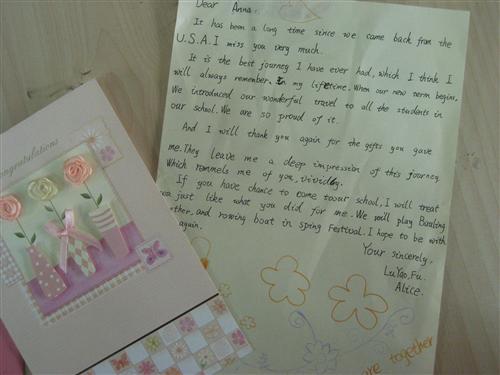 Dear Anna:
It has been a long time since we came back from the
U.S.A. I miss you very much.
It is the best journey I have ever had, which I think I
will always remember. In my lifetime. When our new term begins,
We introduced our wonderful travel to all the students in
our school. We are so proud of it.
And I will thank you again for the gifts you gave
me. They leave me a deep impression of this journey.
Which remmels me of you, vividly.
If you have chance to come to our school, I will treat
you just like what you did for me. We will play Bowling
ther, and rowing boat in sping Festival. I hope to be with
again.
Your sincerely,
LuYao, Fu.
Alice.
ongratulations
are together